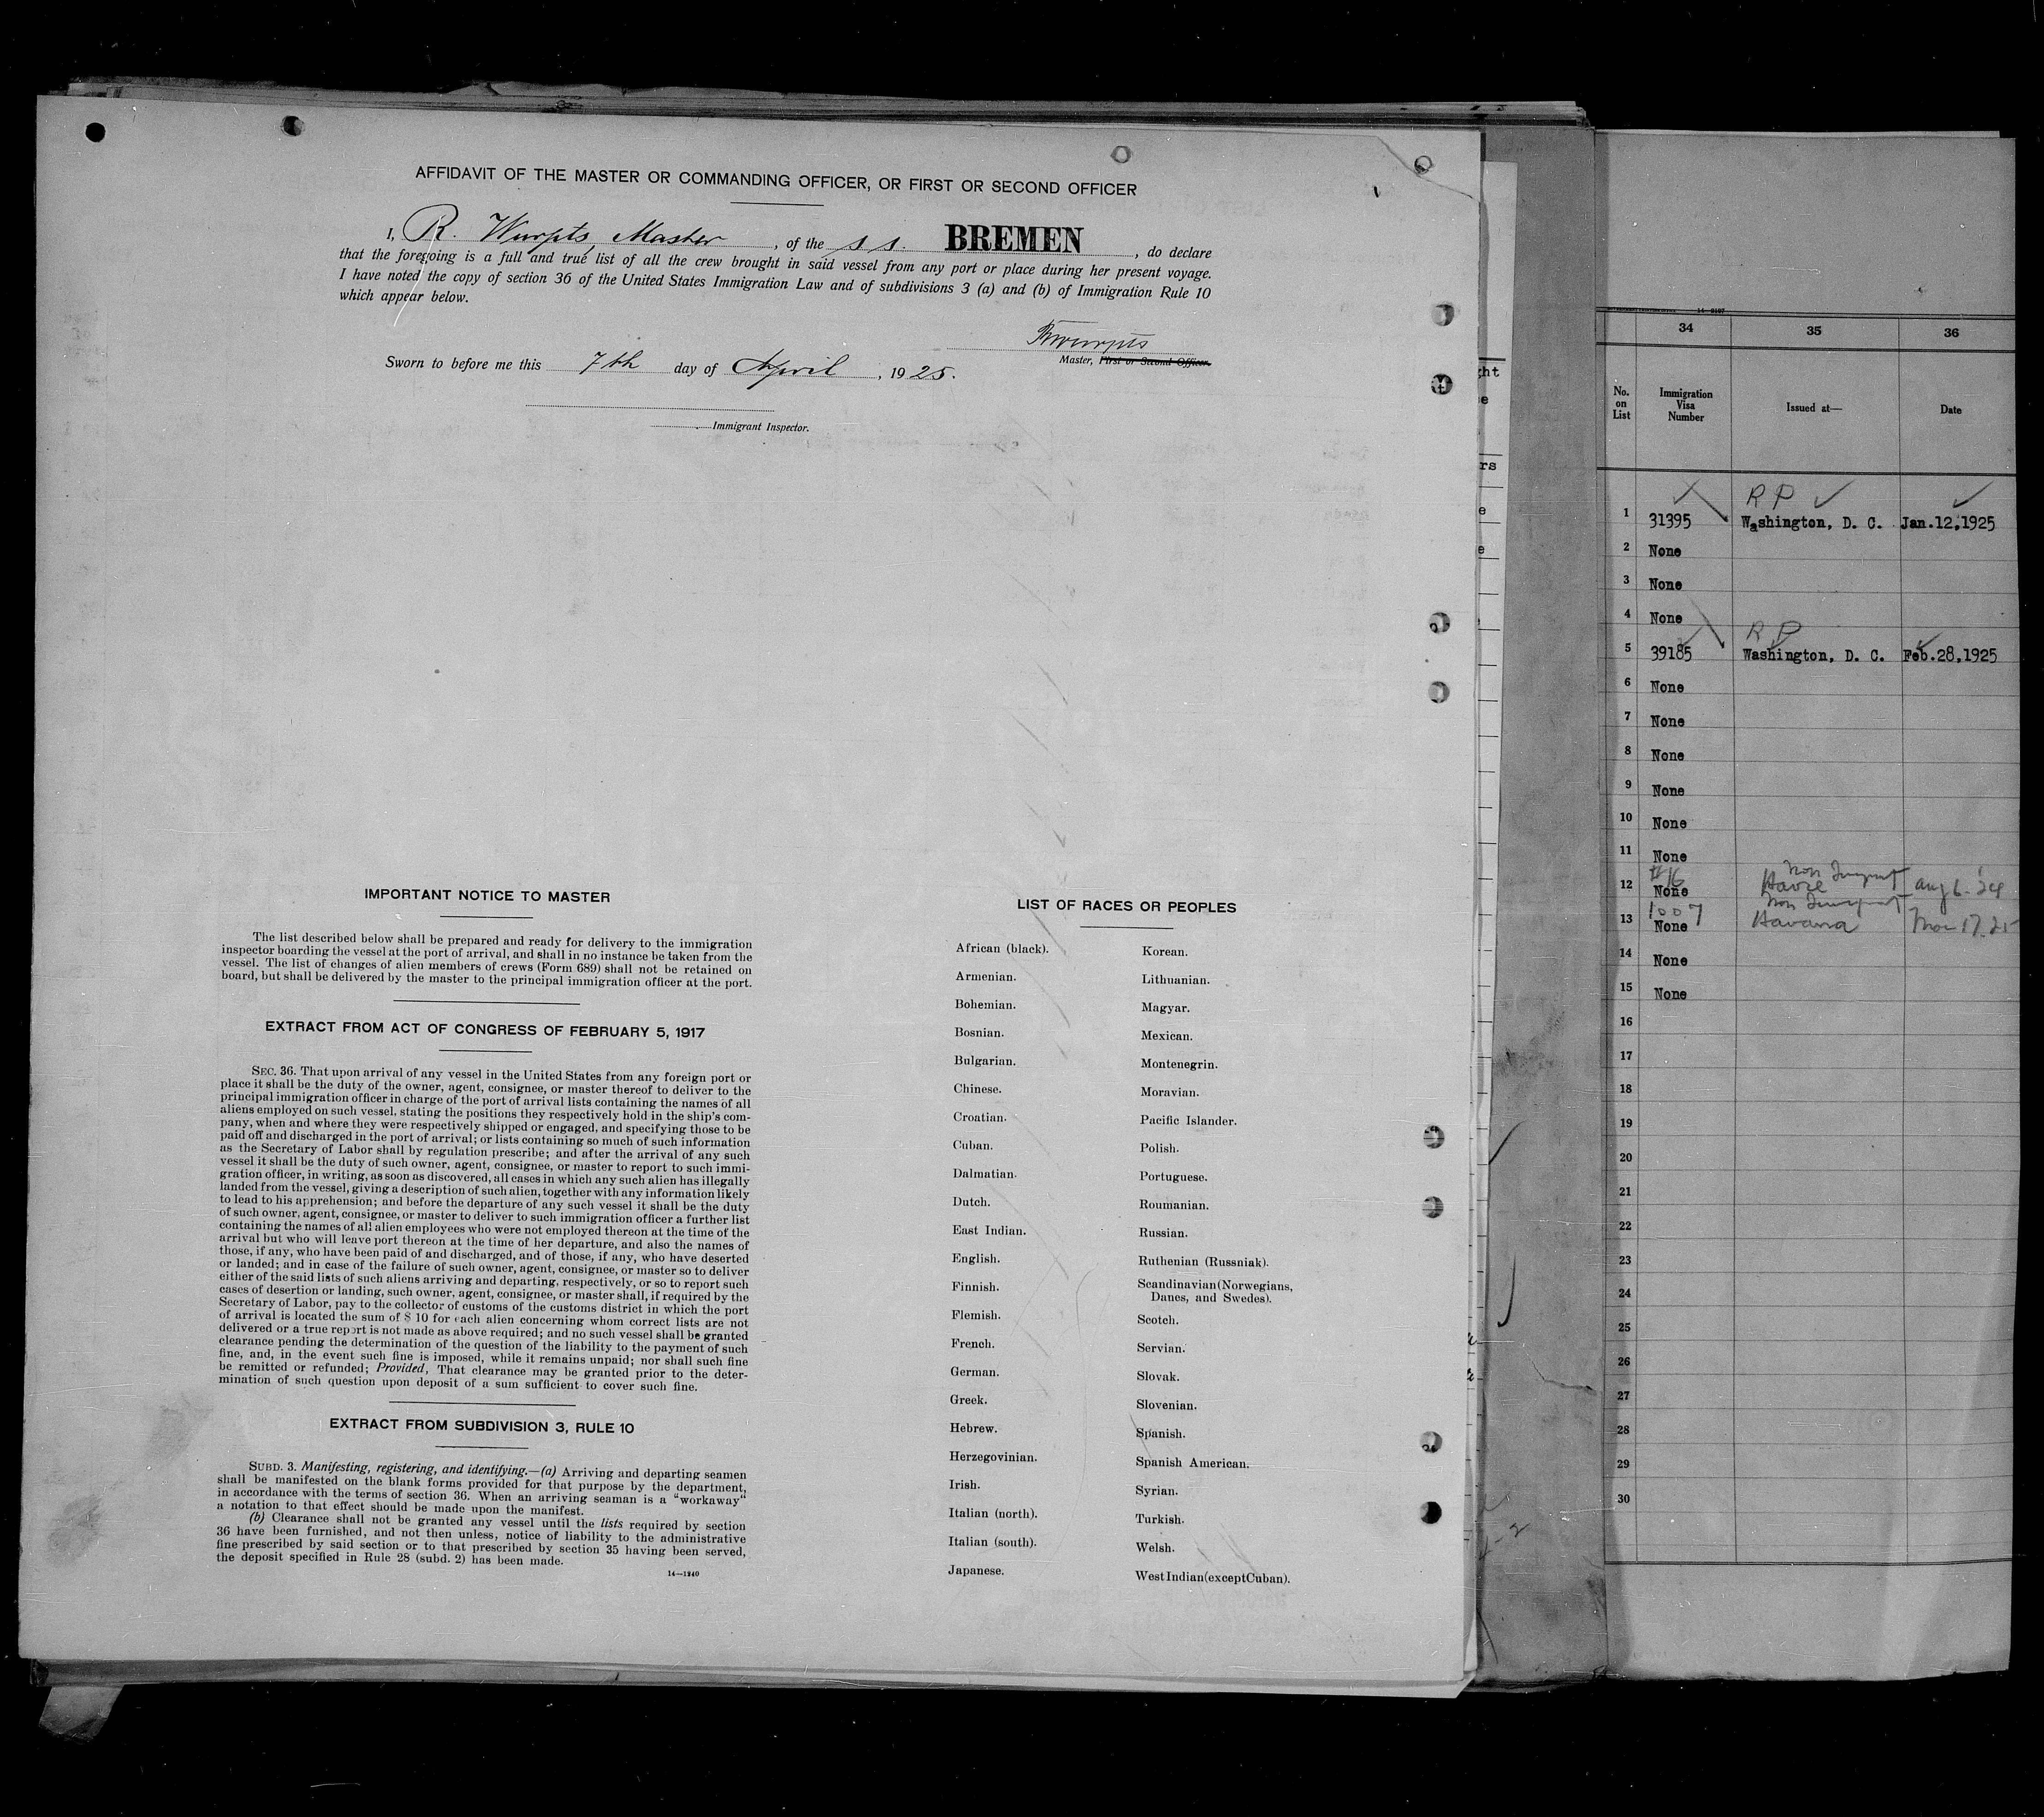 AFFIDAVIT OF THE MASTER OR COMMANDING OFFICER, OR FIRST OR SECOND OFFICER
I, R. Wurpts, Master, of the s s. BREMEN, do declare
that the foregoing is a full and true list of all the crew brought in said vessel from any port or place during her present voyage.
I have noted the copy of section 36 of the United States Immigration Law and of subdivisions 3 (a) and (b) of Immigration Rule 10
which appear below.
RWurpts
Master, First or Second Officer.
Sworn to before me this 7th day of April, 1925.
Immigrant Inspector.
IMPORTANT NOTICE TO MASTER
The list described below shall be prepared and ready for delivery to the immigration
inspector boarding the vessel at the port of arrival, and shall in no instance be taken from the
vessel. The list of changes of alien members of crews (Form 689) shall not be retained on
board, but shall be delivered by the master to the principal immigration officer at the port.
EXTRACT FROM ACT OF CONGRESS OF FEBRUARY 5, 1917
SEC. 36. That upon arrival of any vessel in the United States from any foreign port or
place it shall be the duty of the owner, agent, consignee, or master thereof to deliver to the
principal immigration officer in charge of the port of arrival lists containing the names of all
aliens employed on such vessel, stating the positions they respectively hold in the ship's com-
pany, when and where they were respectively shipped or engaged, and specifying those to be
paid off and discharged in the port of arrival; or lists containing so much of such information
as the Secretary of Labor shall by regulation prescribe; and after the arrival of any such
vessel it shall be the duty of such owner, agent, consignee, or master to report to such immi-
gration officer, in writing, as soon as discovered, all cases in which any such alien has illegally
landed from the vessel, giving a description of such alien, together with any information likely
to lead to his apprehension; and before the departure of any such vessel it shall be the duty
of such owner, agent, consignee, or master to deliver to such immigration officer a further list
containing the names of all alien employees who were not employed thereon at the time of the
arrival but who will leave port thereon at the time of her departure, and also the names of
those, if any, who have been paid of and discharged, and of those, if any, who have deserted
or landed; and in case of the failure of such owner, agent, consignee, or master so to deliver
either of the said lists of such aliens arriving and departing, respectively, or so to report such
cases of desertion or landing, such owner, agent, consignee, or master shall, if required by the
Secretary of Labor, pay to the collector of customs of the customs district in which the port
of arrival is located the sum of $ 10 for each alien concerning whom correct lists are not
delivered or a true report is not made as above required; and no such vessel shall be granted
clearance pending the determination of the question of the liability to the payment of such
fine, and, in the event such fine is imposed, while it remains unpaid; nor shall such fine
be remitted or refunded; Provided, That clearance may be granted prior to the deter-
mination of such question upon deposit of a sum sufficient to cover such fine.
EXTRACT FROM SUBDIVISION 3, RULE 10
SUBD. 3. Manifesting, registering, and identifying.—(a) Arriving and departing seamen
shall be manifested on the blank forms provided for that purpose by the department,
in accordance with the terms of section 36. When an arriving seaman is a "workaway"
a notation to that effect should be made upon the manifest.
(b) Clearance shall not be granted any vessel until the lists required by section
36 have been furnished, and not then unless, notice of liability to the administrative
fine prescribed by said section or to that prescribed by section 35 having been served,
the deposit specified in Rule 28 (subd. 2) has been made.
14—1240
LIST OF RACES OR PEOPLES
African (black).
Armenian.
Bohemian.
Bosnian.
Bulgarian.
Chinese.
Croatian.
Cuban.
Dalmatian.
Dutch.
East Indian.
English.
Finnish.
Flemish.
French.
German.
Greek.
Hebrew.
Herzegovinian.
Irish.
Italian (north).
Italian (south).
Japanese.
Korean.
Lithuanian.
Magyar.
Mexican.
Montenegrin.
Moravian.
Pacific Islander.
Polish.
Portuguese.
Roumanian.
Russian.
Ruthenian (Russniak).
Scandinavian (Norwegians,
Danes, and Swedes).
Scotch.
Servian.
Slovak.
Slovenian.
Spanish.
Spanish American.
Syrian.
Turkish.
Welsh.
West Indian (except Cuban).
34 35 36
No. on List Immigration Visa Number Issued at— Date
R P
1 31395 Washington, D. C. Jan.12,1925
2 None
3 None
4 None
R P
5 39185 Washington, D. C. Feb.28,1925
6 None
7 None
8 None
9 None
10 None
11 None
#16 Non Immgrant
12 None Havre Aug 6-24
1007 Non Immgrant
13 None Havana Mar 17.25
14 None
15 None
16
17
18
19
20
21
22
23
24
25
26
27
28
29
30